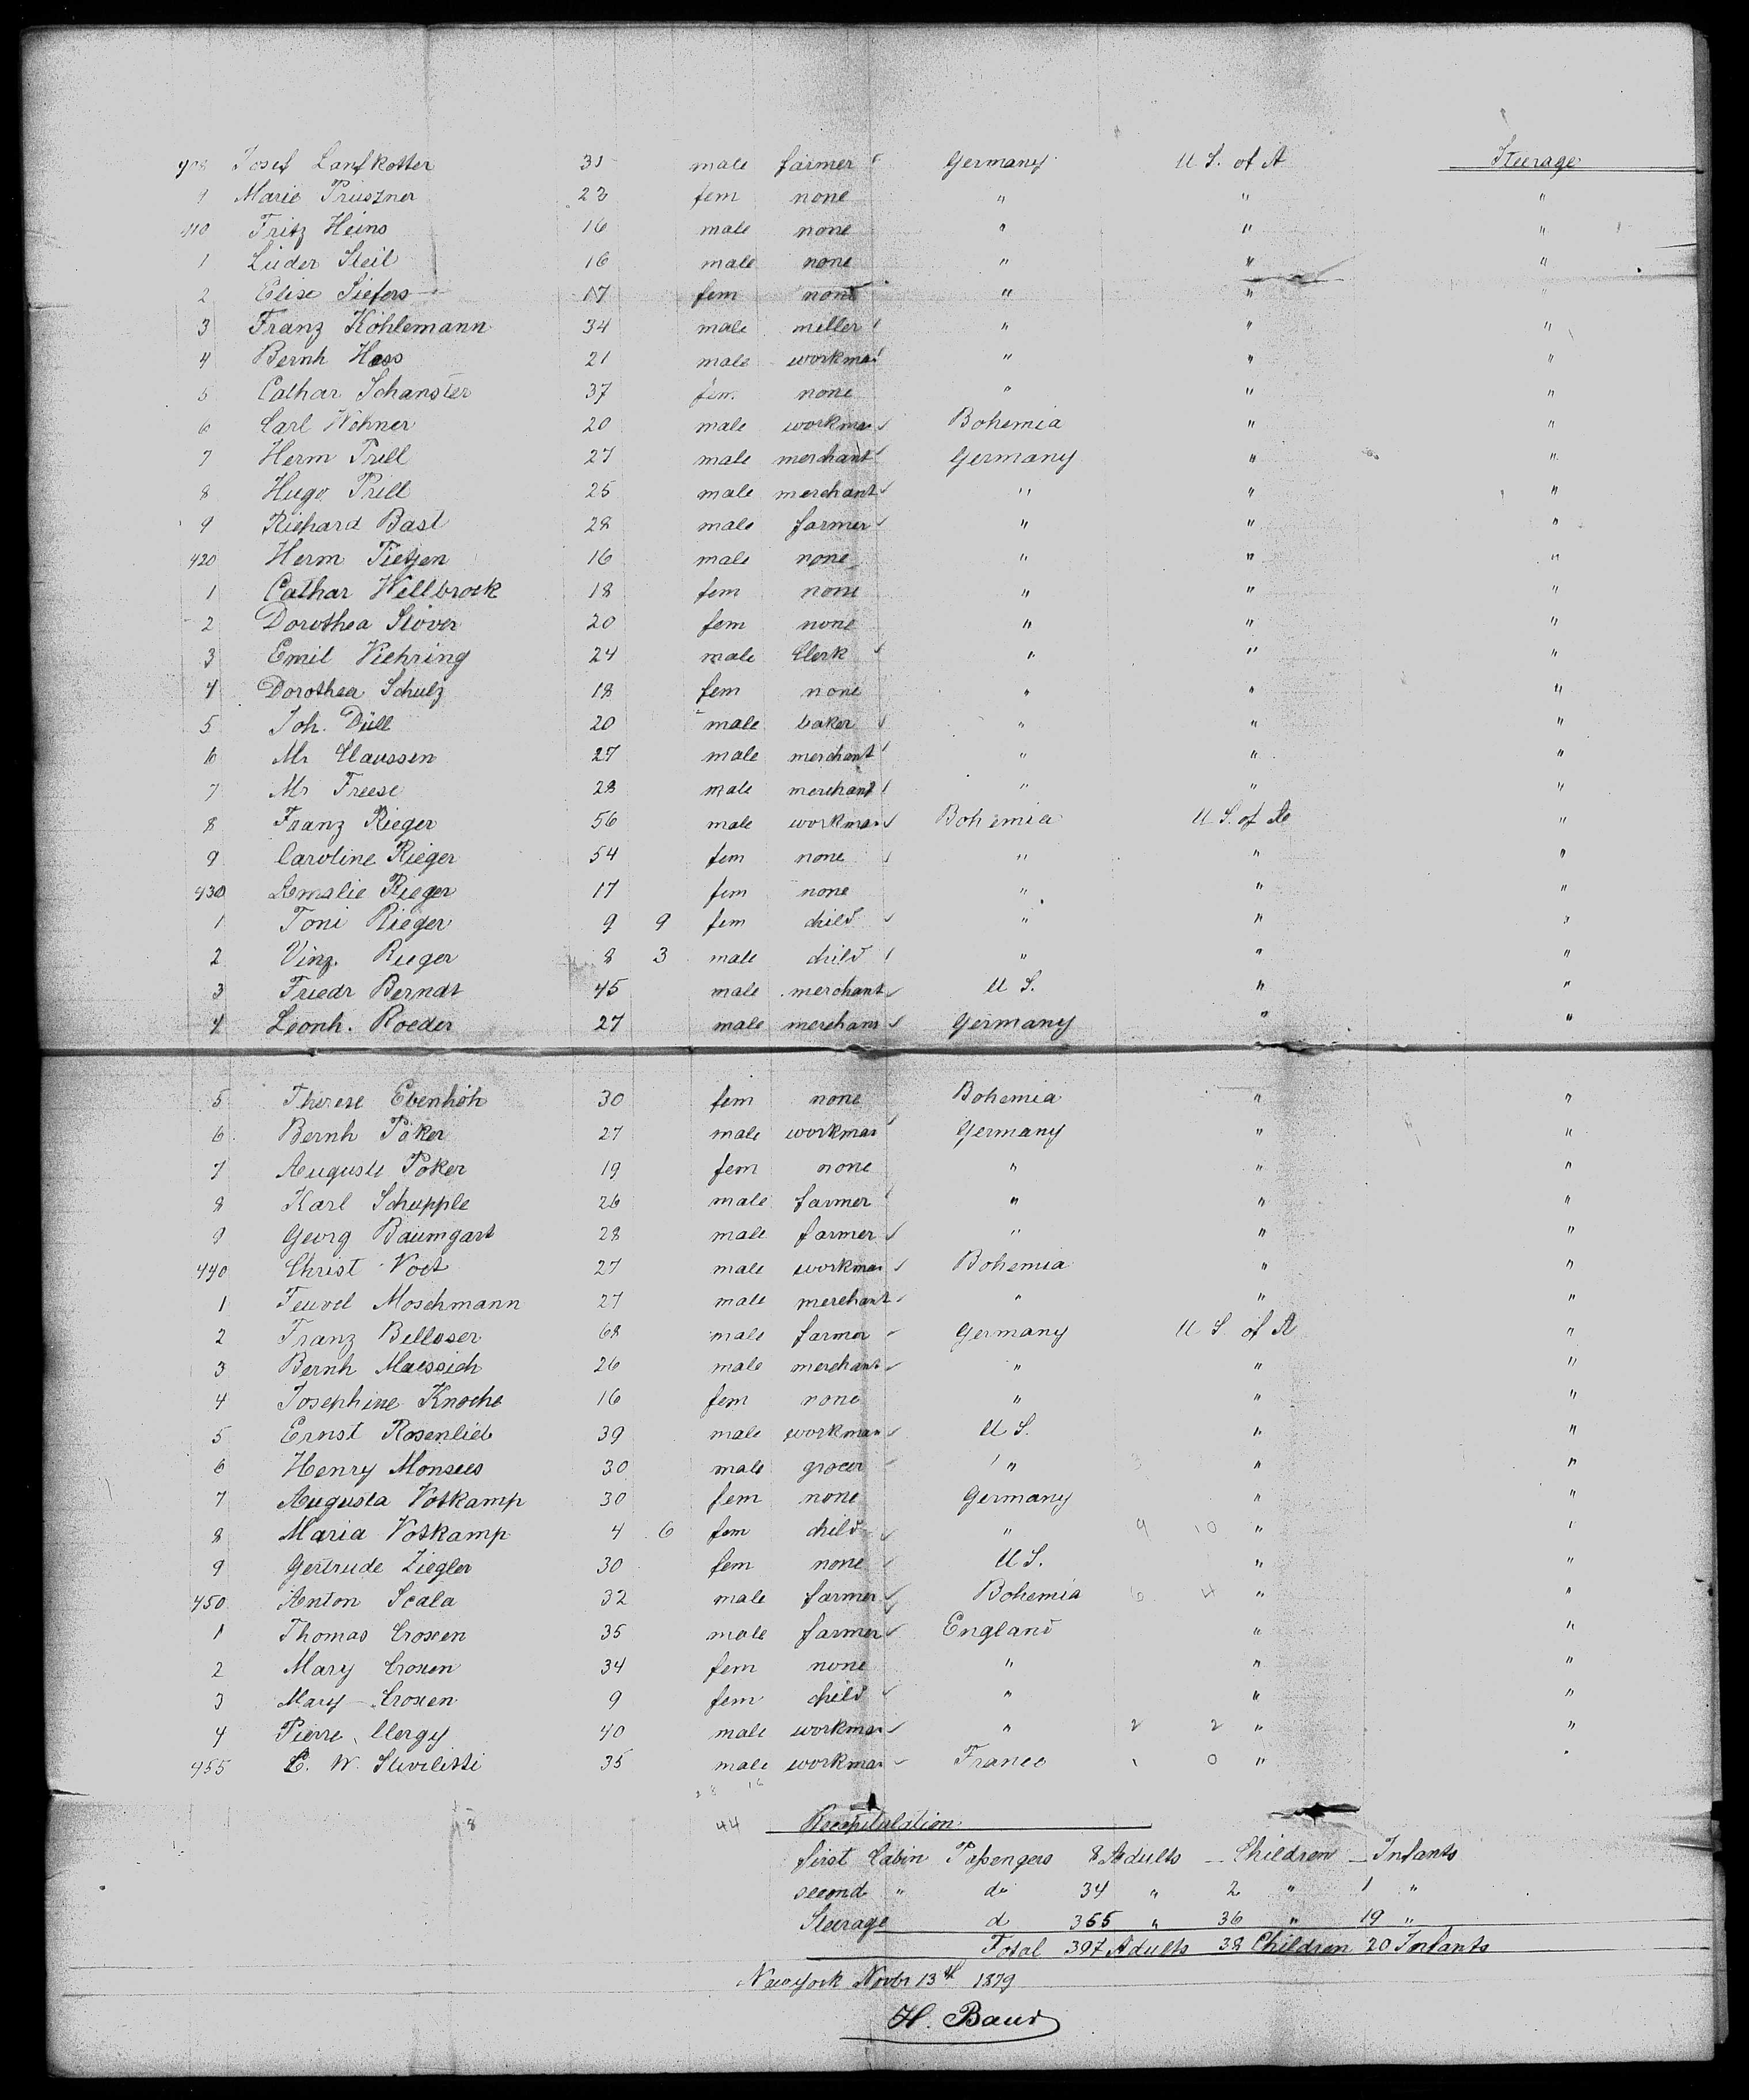 408 Josef Lanfkotter 31 male farmer Germany U S. of A Steerage
9 Marie Pruszner 22 fem none " " "
410 Fritz Heins 16 male none " " "
1 Lüder Steil 16 male none " " "
2 Elise Siefers 17 fem none " " "
3 Franz Köhlemann 34 male miller " " "
4 Bernh Hess 21 male workman " " "
5 Cathar Schanster 37 fem. none " " "
6 Carl Wohner 20 male workman Bohemia " "
7 Herm Prell 27 male merchant Germany " "
8 Hugo Prell 25 male merchant " " "
9 Richard Bast 28 male farmer " " "
420 Herm Tietjen 16 male none " " "
1 Cathar Wellbrock 18 fem none " " "
2 Dorothea Stöver 20 fem none " " "
3 Emil Viehring 24 male Clerk " " "
4 Dorothea Schulz 18 fem none " " "
5 Joh. Düll 20 male baker " " "
6 Mr Claussen 27 male merchant " " "
7 Mr Freese 28 male merchant " " "
8 Franz Rieger 56 male workman Bohemia U S. of A "
9 Caroline Rieger 54 fem none " " "
430 Amalie Rieger 17 fem none " " "
1 Toni Rieger 9 9 fem child " " "
2 Vinz. Rieger 8 3 male child " " "
3 Friedr Berndt 45 male merchant U S. " "
4 Leonh. Roeder 27 male merchant Germany " "
5 Therese Ebenhöh 30 fem none Bohemia " "
6 Bernh Poker 27 male workman Germany " "
7 Auguste Poker 19 fem none " " "
8 Karl Schupple 26 male farmer " " "
9 Georg Baumgart 28 male farmer " " "
440 Christ Voet 27 male workman Bohemia " "
1 Teuvel Moschmann 27 male merchant " " "
2 Franz Belloser 68 male farmer Germany U S. of A "
3 Bernh Maessich 26 male merchant " " "
4 Josephine Knoche 16 fem none " " "
5 Ernst Rosenlieb 39 male workman U S. " "
6 Henry Monsees 30 male grocer " " "
7 Augusta Votkamp 30 fem none Germany " "
8 Maria Votkamp 4 6 fem child " 9 10 " "
9 Gertrude Ziegler 30 fem none U S. " "
450 Anton Scala 32 male farmer Bohemia 6 4 " "
1 Thomas Croxen 35 male farmer England " "
2 Mary Croxen 34 fem none " " "
3 Mary Croxen 9 fem child " " "
4 Pierre Clergy 40 male workman " 2 2 " "
455 C. W. 35 male workman France 1 0 " "
44 Recapitulation
first Cabin Passengers 8 Adults — Children — Infants
second " do 34 " 2 " 1 "
Steerage d 355 " 36 " 19 "
Total 397 Adults 38 Children 20 Infants
New York Novbr 13th 1879
H. Baur